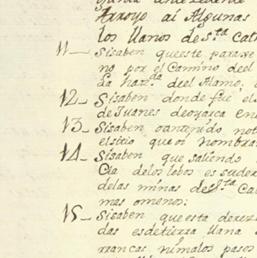 Arroyo ai Algunas
los llanos de s.ta Cat
11— Sisaben queeste paraxe
no por el Camino del
La haz.da del Alamo,
12— Sisaben donde fue el s
de Juanes
13— Sisaben not
elsitio que oi nombra
14— Sisaben que saliendo
Cia delos lobos es
delas minas de S.ta Cat
mas omenos;
15— Sisaben que esta
das es tierra llana
rrancas, nimalos pasos